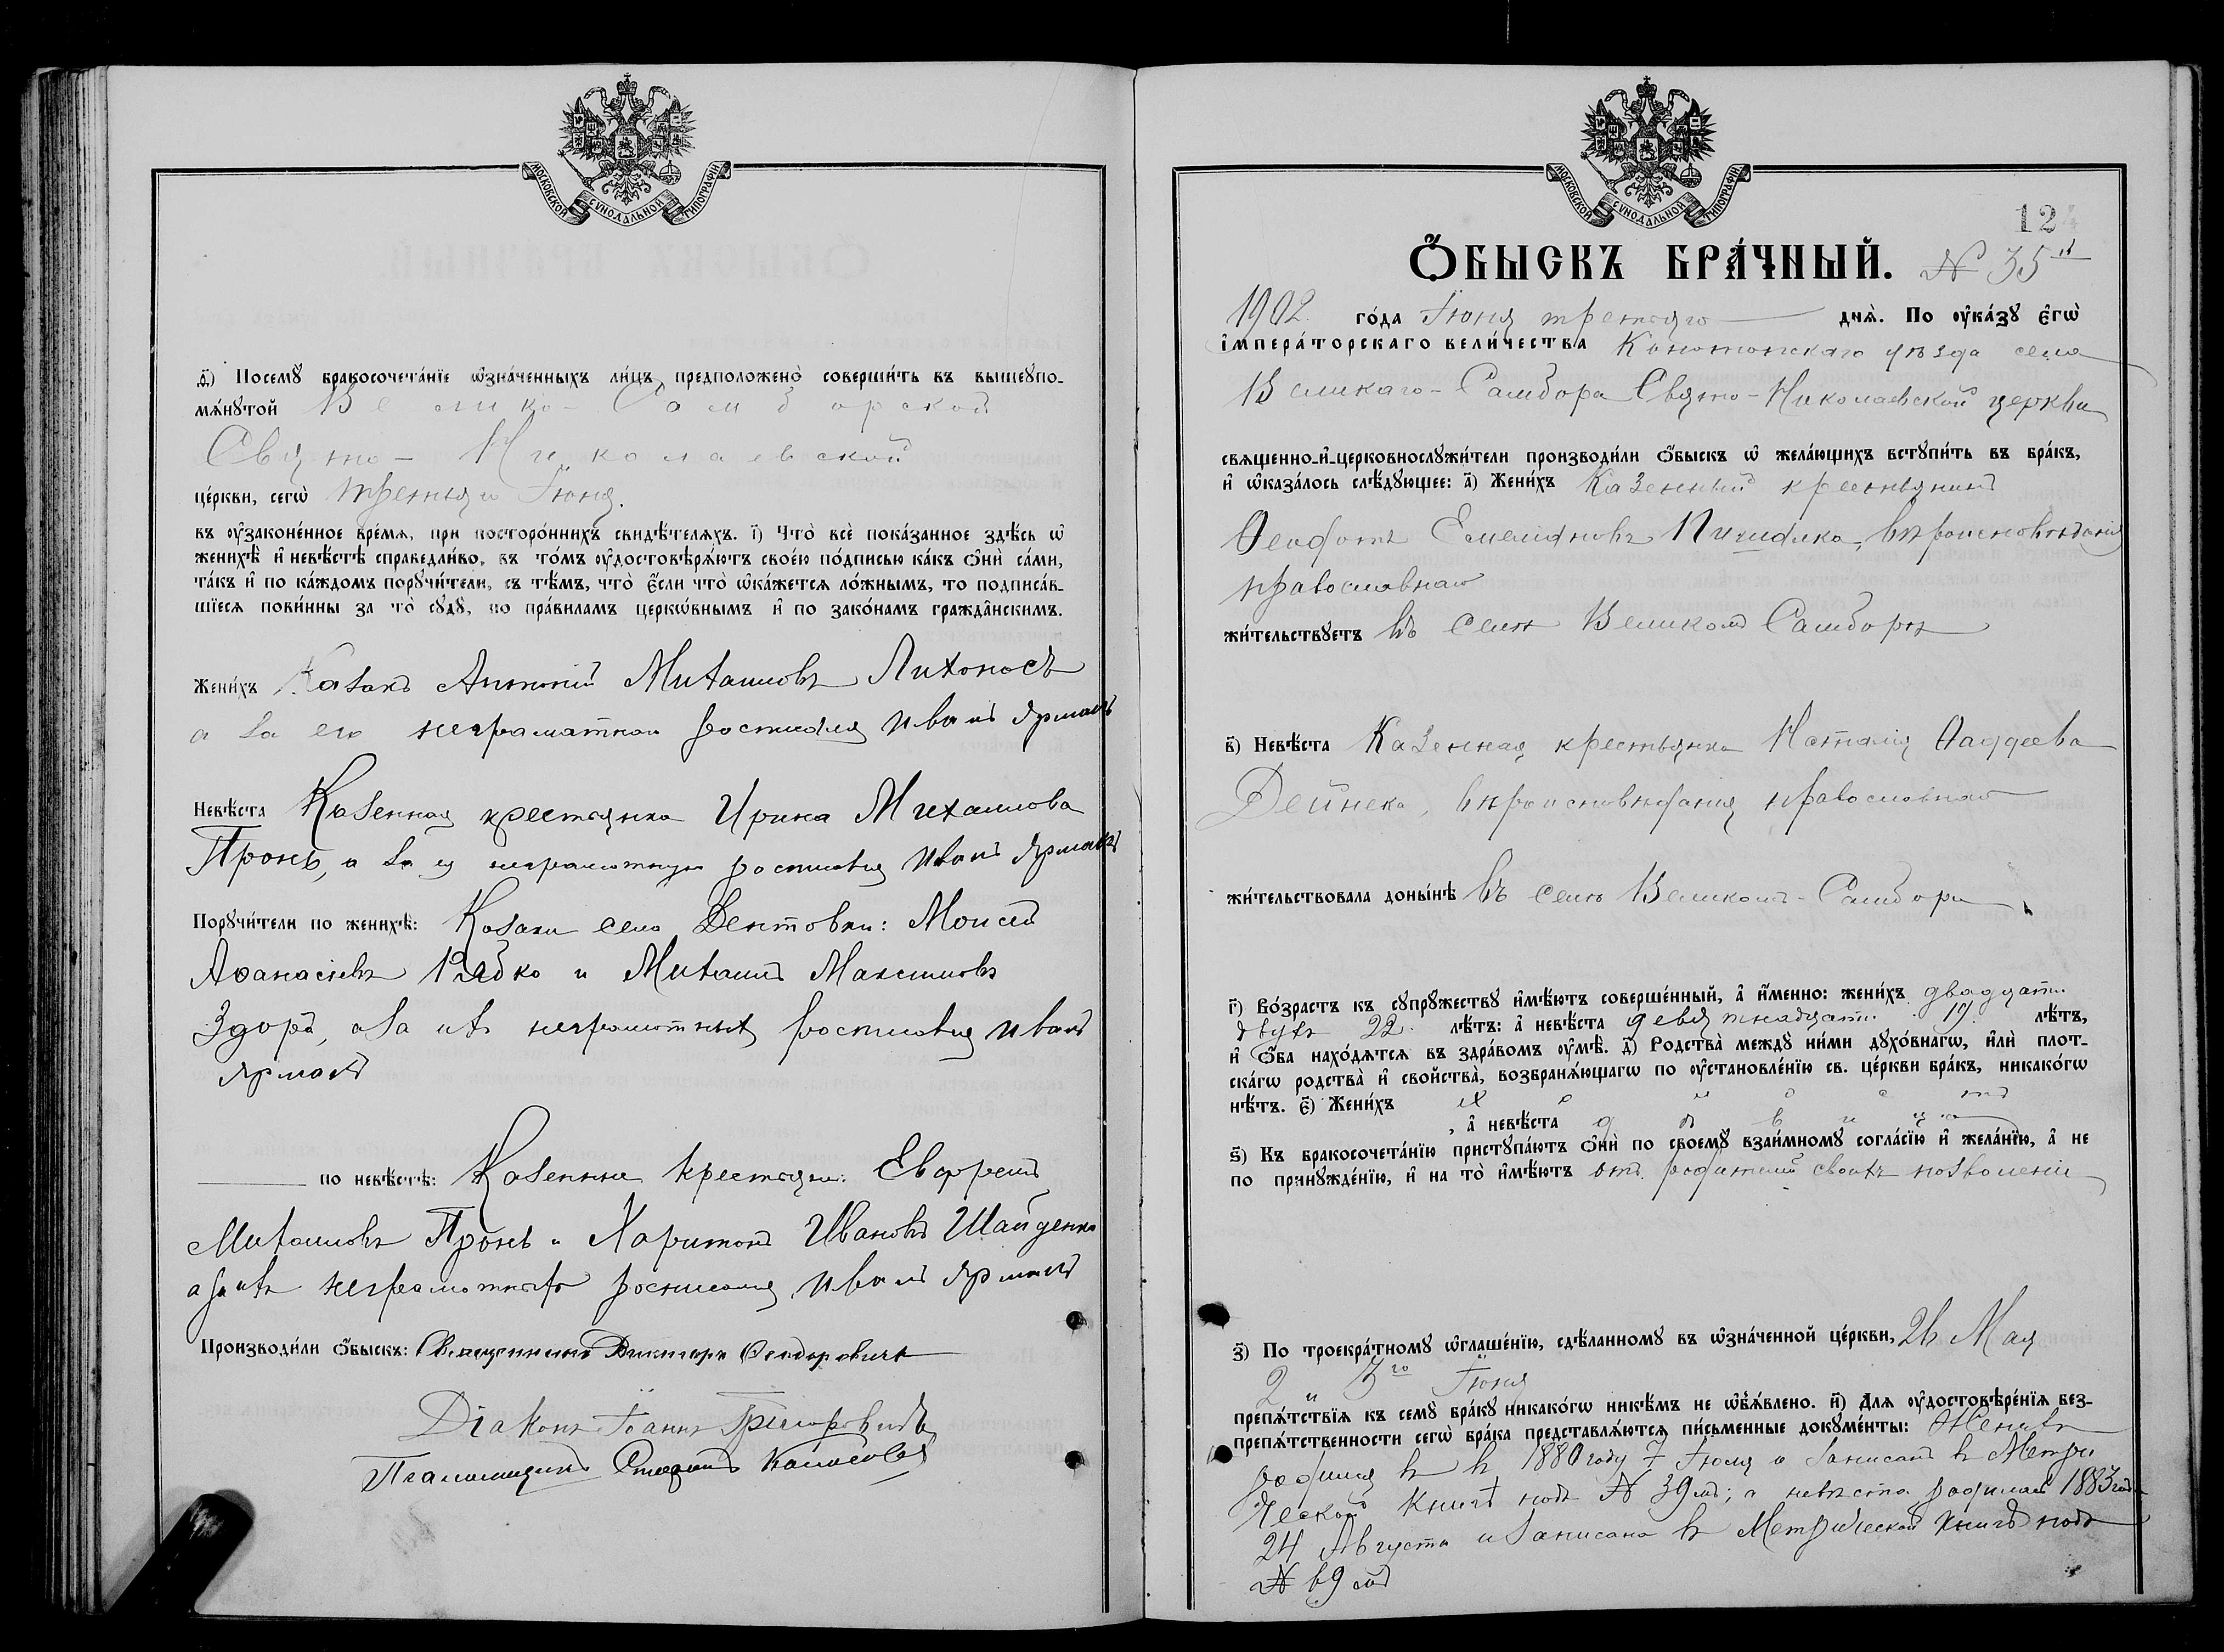 МОСКОВСКОЙ СѴНОДАЛЬНОЙ ТИПОГРАФІИ
д҃) Посемꙋ бракосочета́нїе ѡ҆зна́ченныхъ ли́цъ предположено̀ соверши́ть въ вышеꙋпо-
мѧ́нꙋтой Велико-Самборской
Свято-Николаевской
це́ркви, сегѡ̀ третьяго Іюня.
въ ᲂу҆законе́нное вре́мѧ, при посторо́ннихъ свидѣ́телѧхъ. і҃) Что̀ всѐ пока́занное здѣ́сь ѡ҆
женихѣ̀ и҆ невѣ́стѣ справедли́во, въ то́мъ ᲂу҆достовѣрѧ́ютъ свое́ю по́дписью ка́къ ѻ҆нѝ са́ми,
та́къ и҆ по ка́ждомъ порꙋчи́тели, съ тѣ́мъ, что̀ є҆́сли что̀ ѡ҆ка́жетсѧ ло́жнымъ, то подписа́в-
шїесѧ пови́нны за то̀ сꙋдꙋ̀, по пра́виламъ церкѡ́внымъ и҆ по зако́намъ гражда̂нскимъ.
Жени́хъ Казакъ Антоній Михаиловъ Лихоносъ
а за его неграматного росписался Иванъ Ярмакъ
Невѣ́ста Казенная крестьянка Ирина Михаилова
Пронь, а за ея неграмотную росписался Иванъ Ярмакъ
Порꙋчи́тели по женихѣ̀: Козаки села Дептовки: Моисей
Аѳанасіевъ Рябко и Михаилъ Максимовъ
Здоръ, а за ихъ неграмотныхъ росписался Иванъ
Ярмакъ
по невѣ́стѣ: Казенные крестьяне: Евфремъ
Михаиловъ Пронь и Харитонъ Ивановъ Шайденко
а за ихъ неграмотныхъ росписался Иванъ Ярмакъ
Производи́ли ѻ҆́быскъ: Священникъ Викторъ Ѳеодоровичъ
Діаконъ Іоаннъ Григоровичъ
Псаломщикъ Стефанъ
МОСКОВСКОЙ СѴНОДАЛЬНОЙ ТИПОГРАФІИ
124
Ѻ҆́БЫСКЪ БРА́ЧНЫЙ. № 35й
1902 го́да Іюня третьяго днѧ̀. По ᲂу҆ка́зꙋ є҆гѡ̀
і҆мпера́торскаго вели́чества Конотопскаго уѣзда села
Великаго-Самбора Свято-Николаевской церкви
свѧще́нно-и҆-церковнослꙋжи́тели производи́ли ѻ҆́быскъ ѡ҆ жела́ющихъ встꙋпи́ть въ бра́къ,
и҆ ѡ҆каза́лось слѣ́дꙋющее: а҃) Жени́хъ Казенный крестьянинъ
Ѳеодотъ Емеліановъ Пищалка, вѣроисповѣданія
православнаго
жи́тельствꙋетъ въ селѣ Великомъ Самборѣ
в҃) Невѣ́ста Казенная крестьянка Наталія Ѳаддеева
Дейнека, вѣроисповѣданія православнаго
жи́тельствовала доны́нѣ въ селѣ Великомъ-Самборѣ
г҃) Во́зрастъ къ сꙋпрꙋ́жествꙋ и҆мѣ́ютъ соверше́нный, а҆ и҆́менно: жени́хъ двадцати
двухъ 22. лѣ́тъ: а҆ невѣ́ста девятнадцати 19. лѣ́тъ,
и҆ ѻ҆́ба нахо́дѧтсѧ въ здра́вомъ ᲂу҆мѣ̀. д҃) Родства̀ междꙋ̀ ни́ми дꙋхо́внагѡ, и҆лѝ плот-
ска́гѡ родства̀ и҆ сво́йства̀, возбранѧ́ющагѡ по ᲂу҆становле́нїю св. це́ркви бра́къ, никако́гѡ
нѣ́тъ. є҃) Жени́хъ холостъ
, а҆ невѣ́ста дѣвица
ѕ҃) Къ бракосочета́нїю пристꙋпа́ютъ ѻ҆нѝ по своемꙋ̀ взаи́мномꙋ согла́сїю и҆ жела́нїю, а҆ не
по принꙋжде́нїю, и҆ на то̀ и҆мѣ́ютъ отъ родителей своихъ позволеніе
з҃) По троекра́тномꙋ ѡ҆глаше́нїю, сдѣ́ланномꙋ въ ѡ҆зна́ченной це́ркви, 26 Мая
2 и 3го Іюня
препѧ́тствїѧ къ семꙋ̀ бра́кꙋ никако́гѡ никѣ́мъ не ѡ҆б̾ѧ́влено. и҃) Длѧ ᲂу҆достовѣре́нїѧ без-
препѧ́тственности сегѡ̀ бра́ка представлѧ́ютсѧ пи́сьменные докꙋме́нты: Женихъ
родился въ 1880 году 7 Іюля и записанъ въ Метри
ческой книгѣ подъ № 39мъ; а невѣста родилась 1883 года
24 Августа и записана въ Метрической книгѣ подъ
№ 69мъ